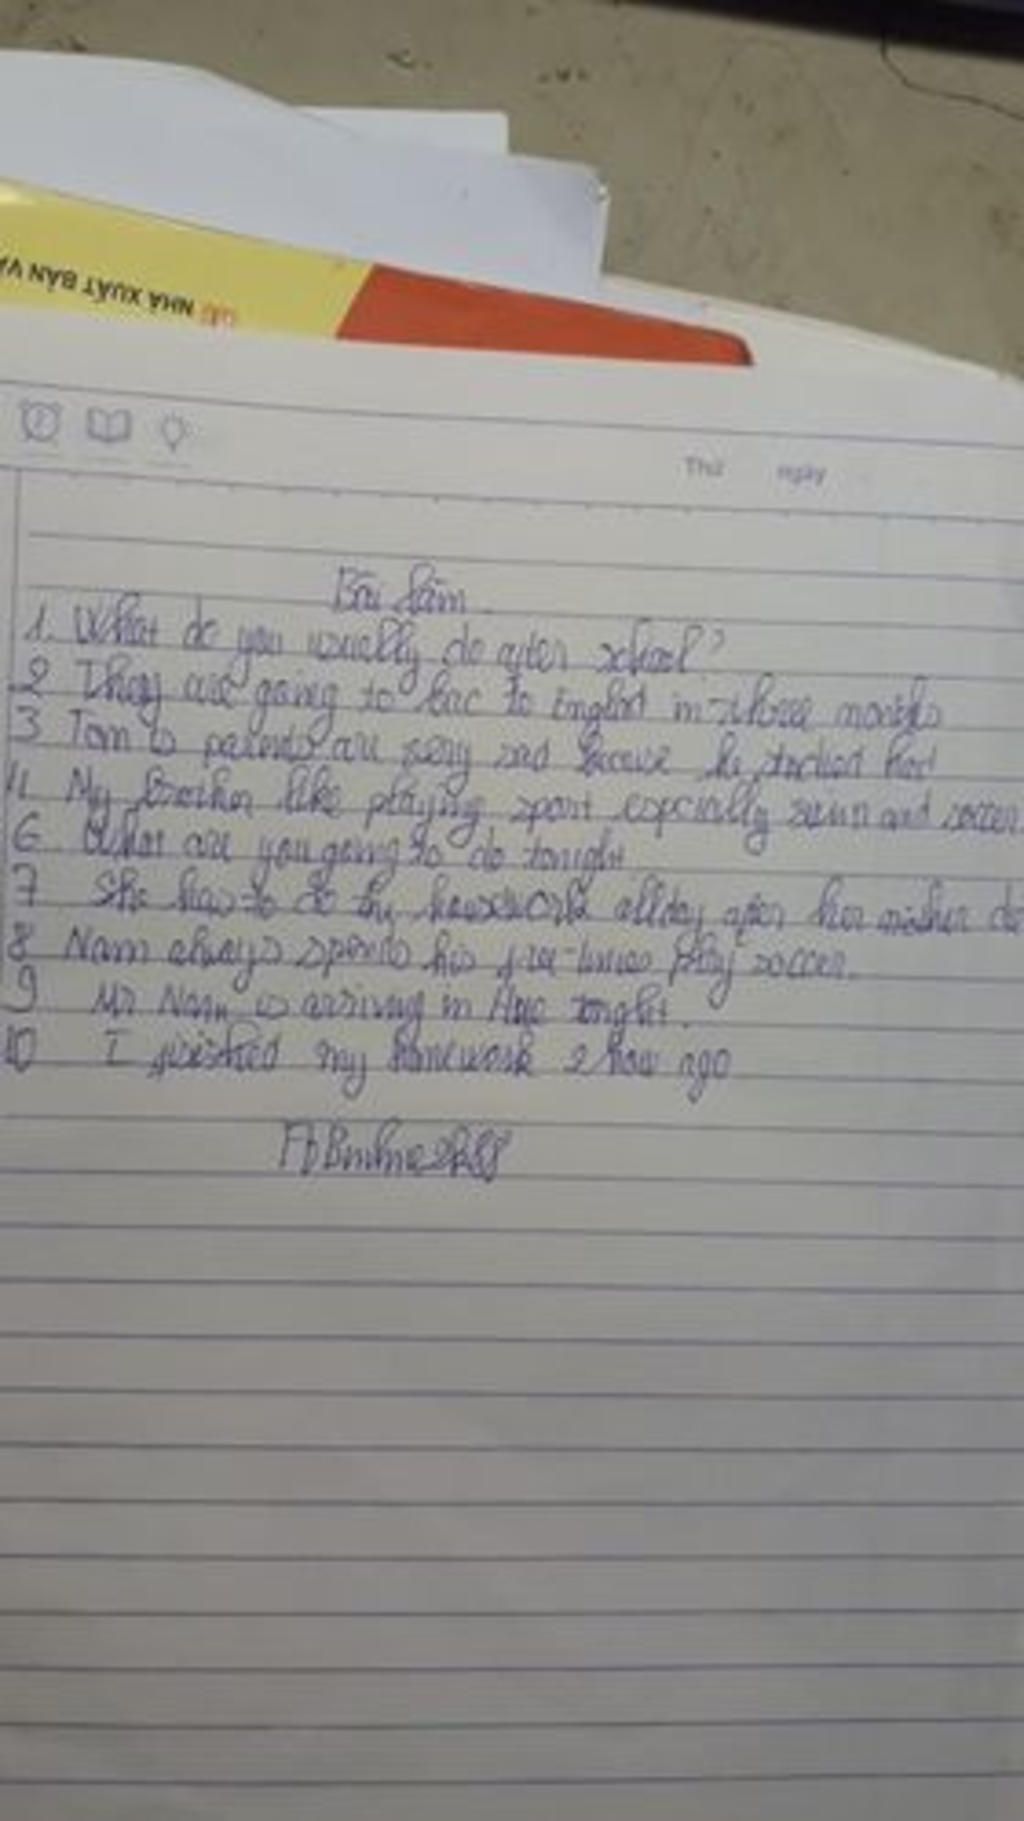 NHÀ XUẤT BẢN
Thứ ngày
Bài làm
1. What do you usually do after school?
2 They are going to bac to in three months
3 Tom is parents are very sad because he studied
4 My Brother like playing sport especially swim and soccer
6 What are you going to do tonight
7 She has to do the housework allday after her mother
8 Nam always spends his free-times play soccer.
9 Mr Nam is arriving in tonght.
10 I finished my homework 2 hour ago